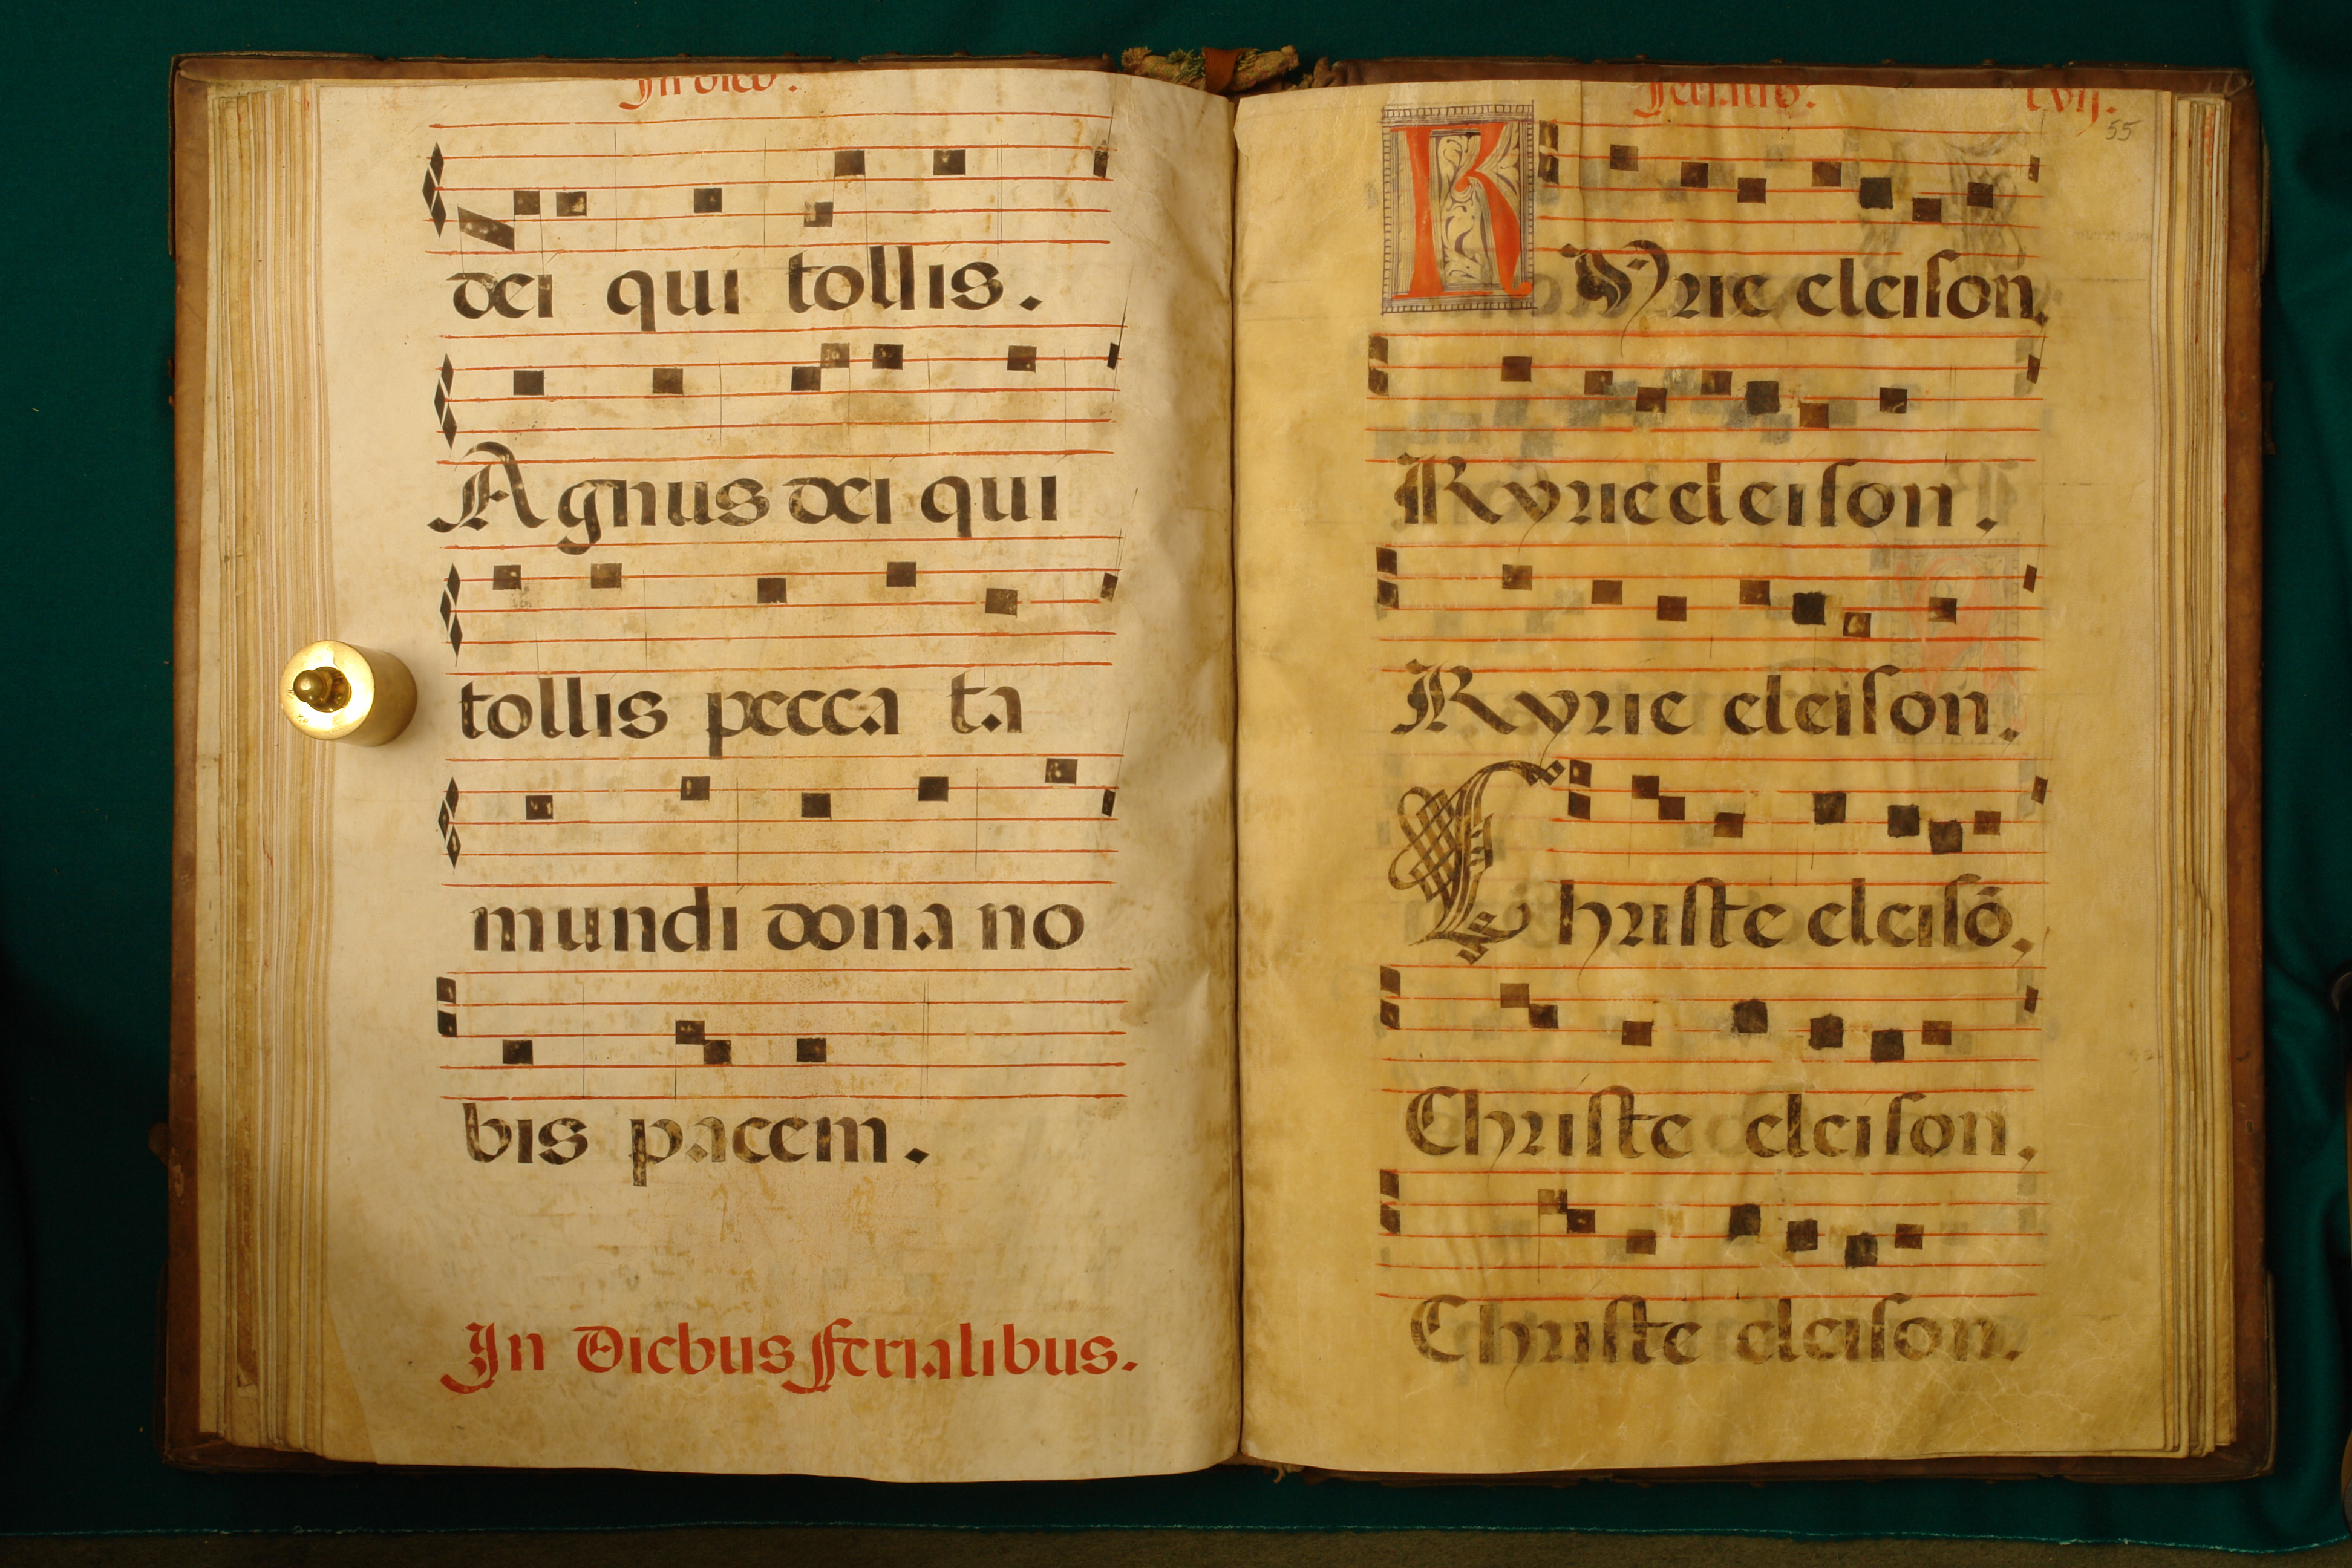 In dieb.
dei qui tollis.
Agnus dei qui
tollis pecca ta
mundi dona no
bis pacem.
In Diebus ferialibus.
55
KYrie eleison.
Kyrie eleison.
Kyrie eleison.
Christe eleisō.
Christe eleison.
Christe eleison.